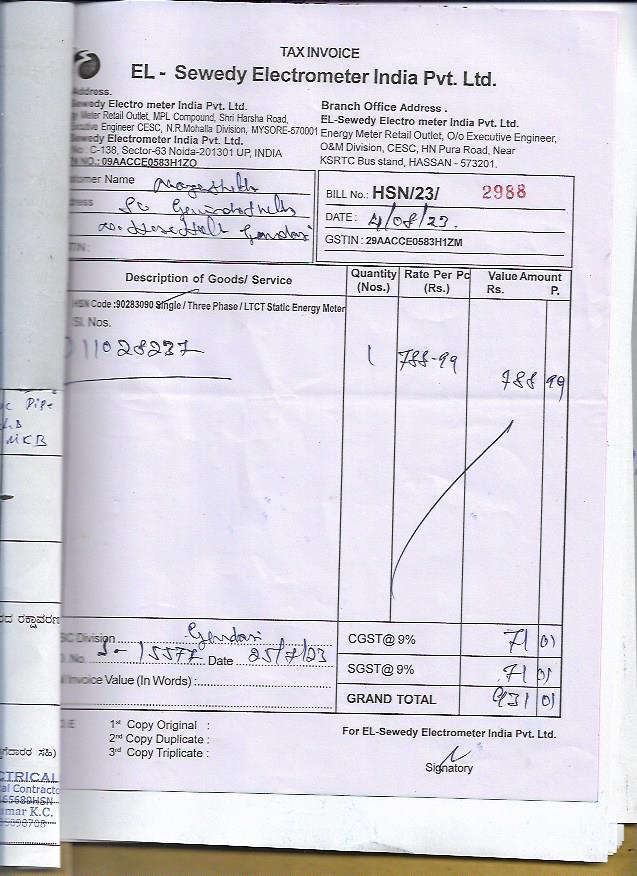 TAX INVOICE
EL - Sewedy Electrometer India Pvt. Ltd.
Address.
Sewedy Electro meter India Pvt. Ltd.
Meter Retail Outlet, MPL Compound, Shri Harsha Road,
Engineer CESC, N.R.Mohalla Division, MYSORE-570001
Sewedy Electrometer India Pvt. Ltd.
C-138, Sector-63 Noida-201301 UP, INDIA
NO.: 09AACCE0583H1ZO
Branch Office Address .
EL-Sewedy Electro meter India Pvt. Ltd.
Energy Meter Retail Outlet, O/o Executive Engineer,
O&M Division, CESC, HN Pura Road, Near
KSRTC Bus stand, HASSAN - 573201.
Customer Name
BILL No.: HSN/23/ 2988
DATE : 4/08/23.
GSTIN : 29AACCE0583H1ZM
Description of Goods/ Service Quantity (Nos.) Rate Per Pc (Rs.) Value Amount Rs. P.
HSN Code :90283090 Single / Three Phase / LTCT Static Energy Meter
Sl. Nos.
11028237 1 788-99 788 99
Division Gandasi
No. Date 25/7/23
Invoice Value (In Words) :
CGST@ 9% 71 01
SGST@ 9% 71 01
GRAND TOTAL 931 01
1st Copy Original :
2nd Copy Duplicate :
3rd Copy Triplicate :
For EL-Sewedy Electrometer India Pvt. Ltd.
Signatory
Pipe
MKB
ರಕ್ಷಾವರಣ
ಸಹಿ)
K.C.